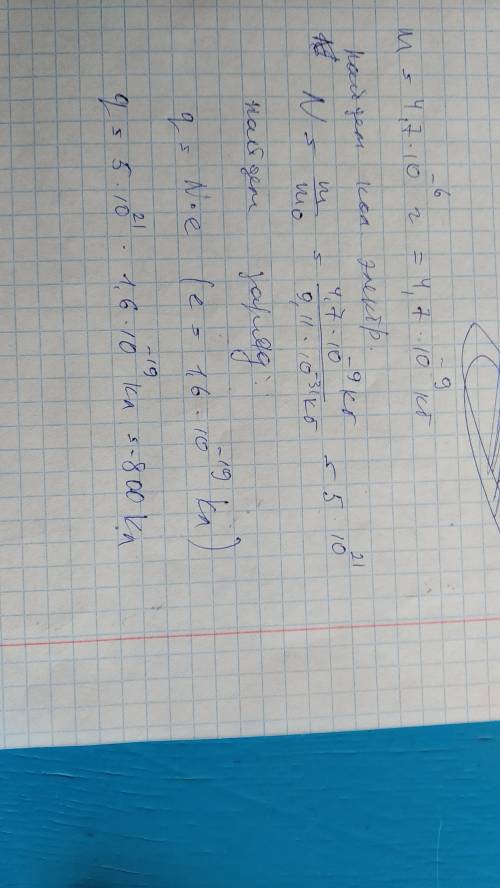 m = 4,7 · 10⁻⁶ г = 4,7 · 10⁻⁹ кг
найдем кол электр.
N = m/m₀ = 4,7 · 10⁻⁹ кг / 9,11 · 10⁻³¹ кг = 5 · 10²¹
найдем заряд:
q = N·e (e = 1,6 · 10⁻¹⁹ Кл)
q = 5 · 10²¹ · 1,6 · 10⁻¹⁹ Кл = -800 Кл